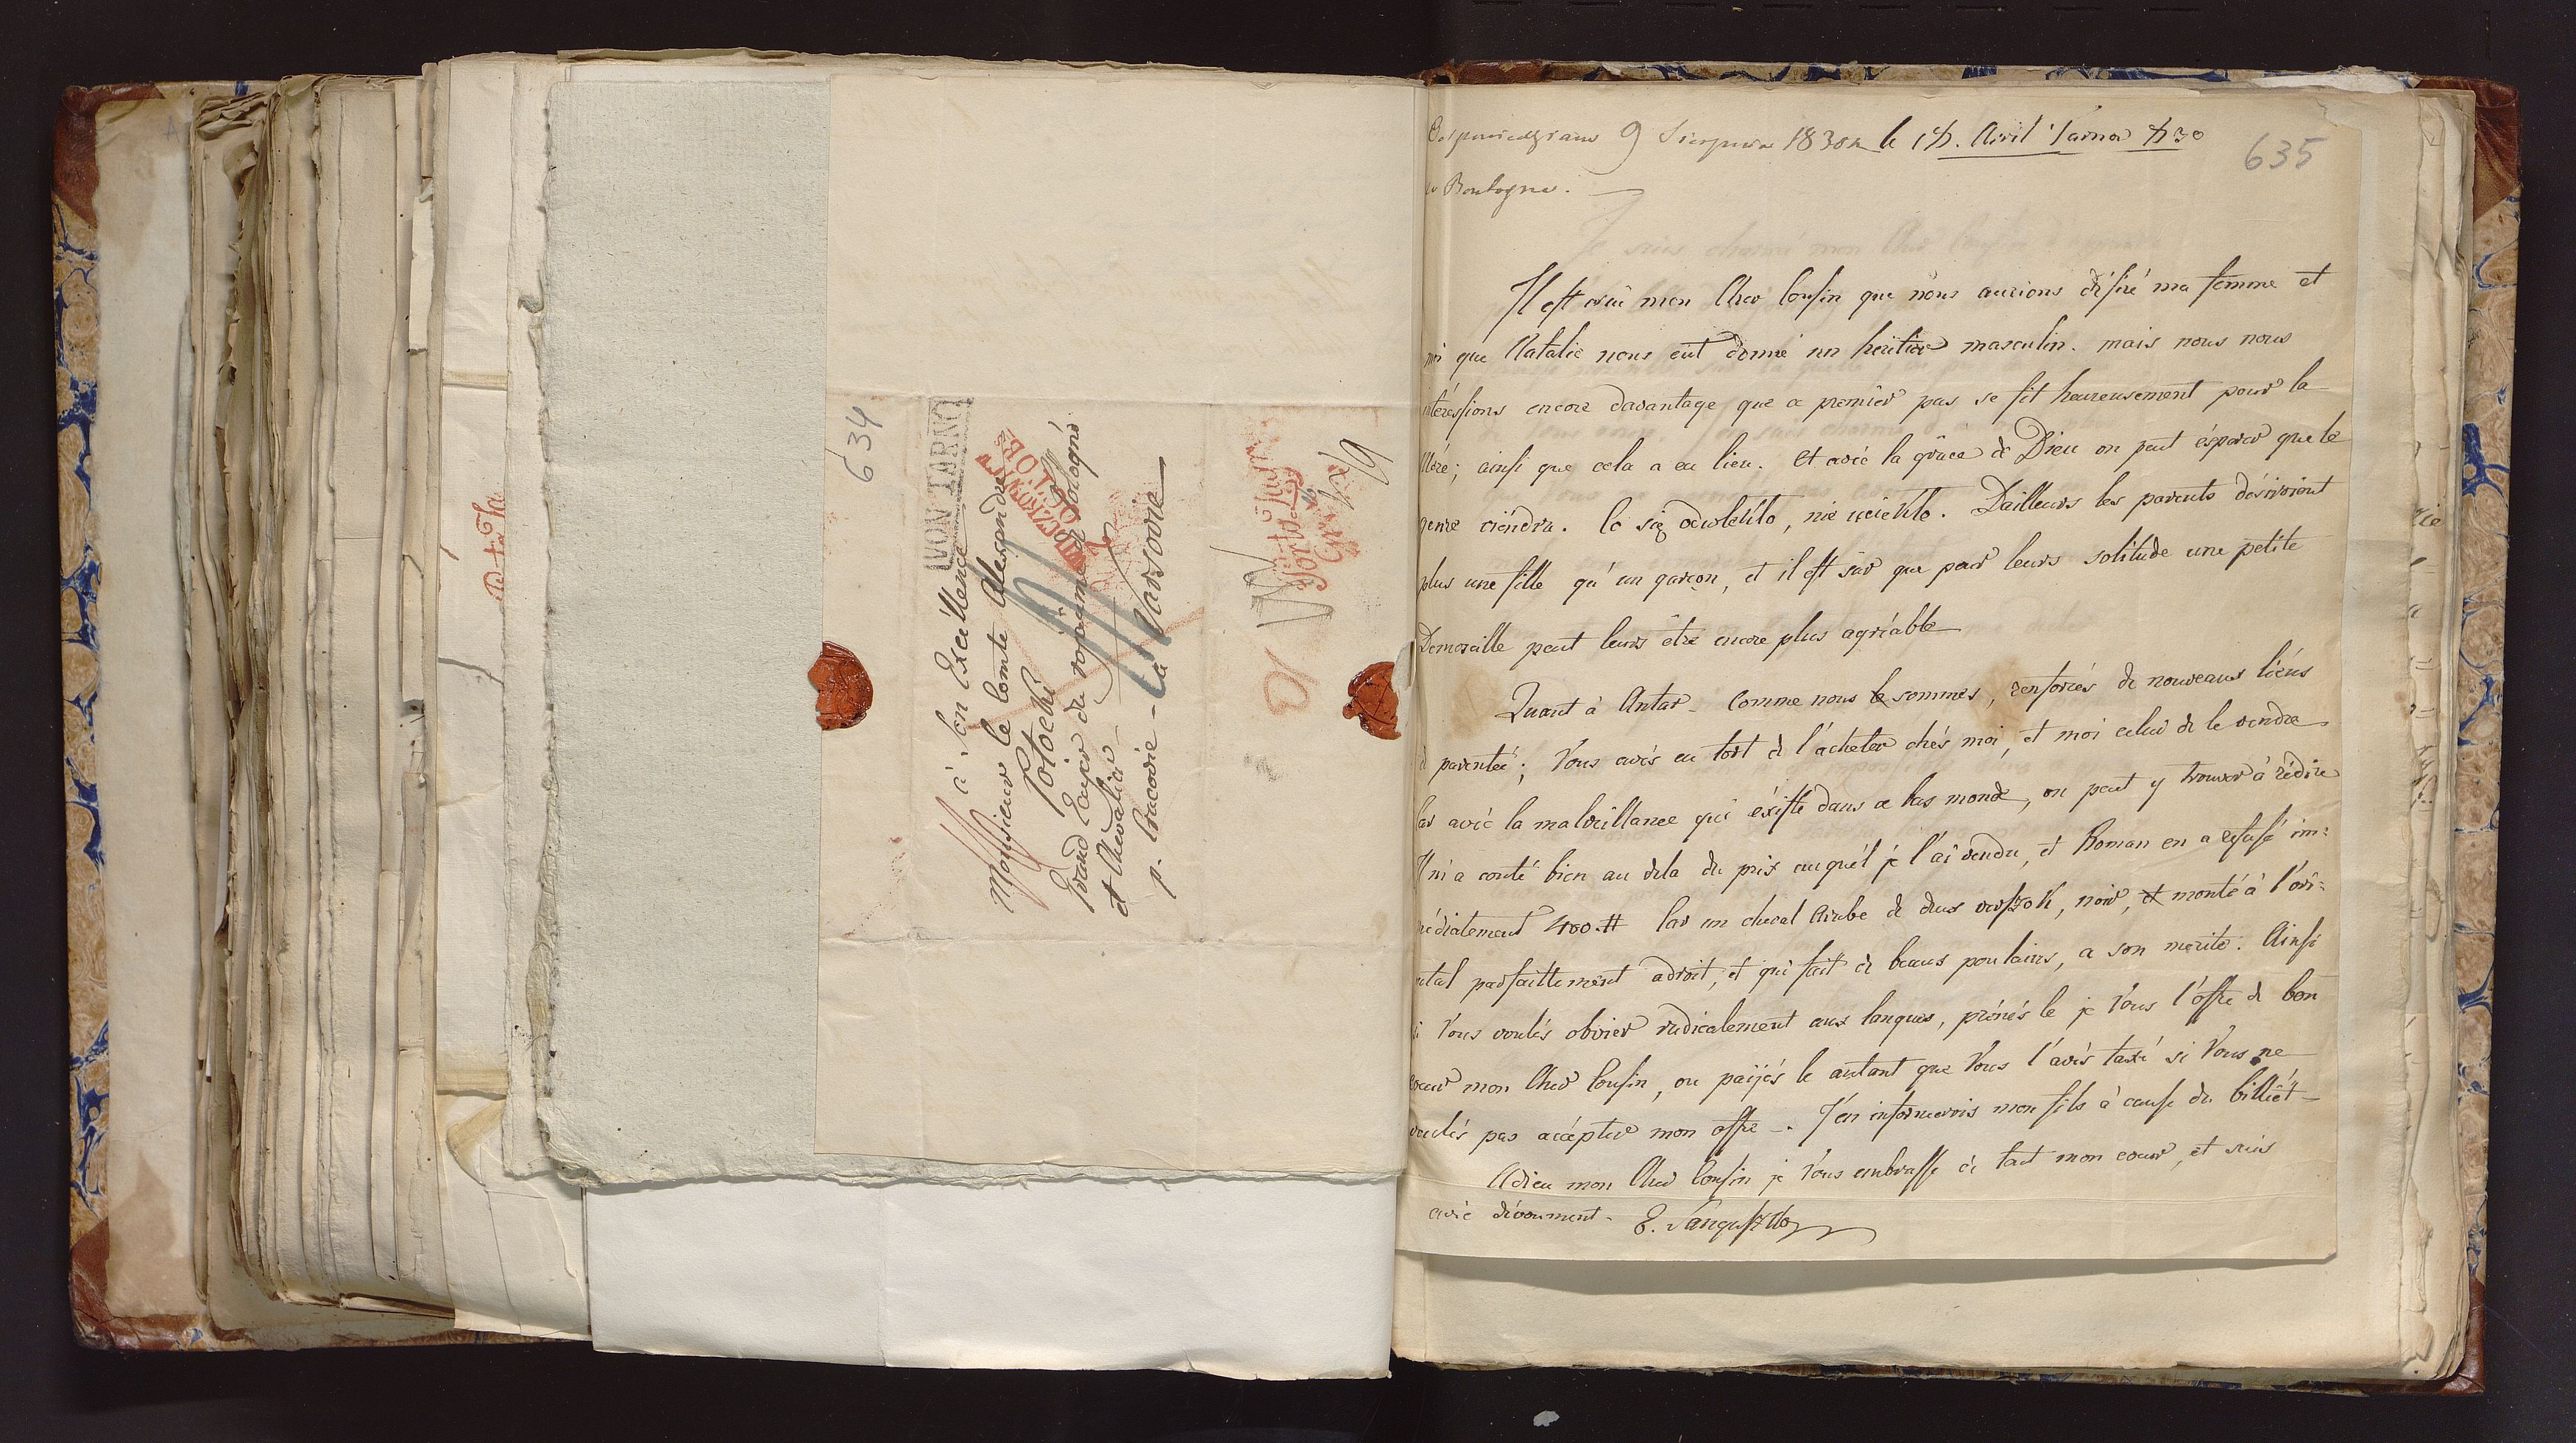 634
VON TARNO
à Son Excellence
Monsieur le Comte Alexandre
Potocki
Grand Ecuyer du royaume de Pologne
et Chevalier
p. Cracovie - à Varsovie
9
635
Odpowiedziano 9 Sierpnia 1830 le Avril Tarno 830
w Boulogne.
Il est vrai mon Cher Cousin que nous aurions désiré ma femme et
moi que Natalie nous eut donné un heritier masculin. mais nous nous
intéressions encore davantage que ce premier pas se fit heureusement pour la
Mère; ainsi que cela a eu lieu. Et avéc la grâce de Dieu on peut ésperer que le
genre viéndra. Co się odwlekło, nie uciekło. Dailleurs les parents désiroient
plus une fille qu'un garçon, et il est sûr que pour leurs solitude une petite
Demoiselle peut leurs être encore plus agréable
Quant à Antar - Comme nous le sommes, renforcés de nouveaus liéns
d parenteé; Vous avés eu tort de l'acheter chés moi, et moi celui de le vendre
Car avéc la malveillance qui éxiste dans ce bas monde, on peut y trouver à rédire
Il m'a couté bien au dela du prix auquél je l'ai vendu, et Roman en a refusé im=
médiatement 400.# Car un cheval Arabe de deus werszok, noir, et monté à l'ori=
ental parfaittement adroit, et qui fait de beaus poulains, a son mérite. Ainsi
si Vous voulés obvier radicalement aux langues, prénés le je Vous l'offre de bon
coeur mon Cher Cousin, ou païjés le autant que Vous l'avés taxé si Vous ne
voulés pas accépter mon offre -. J'en informerois mon fils à cause du billiét -
Adieu mon Cher Cousin je Vous embrasse de tout mon coeur, et suis
avéc dévoument - E. Sanguszko